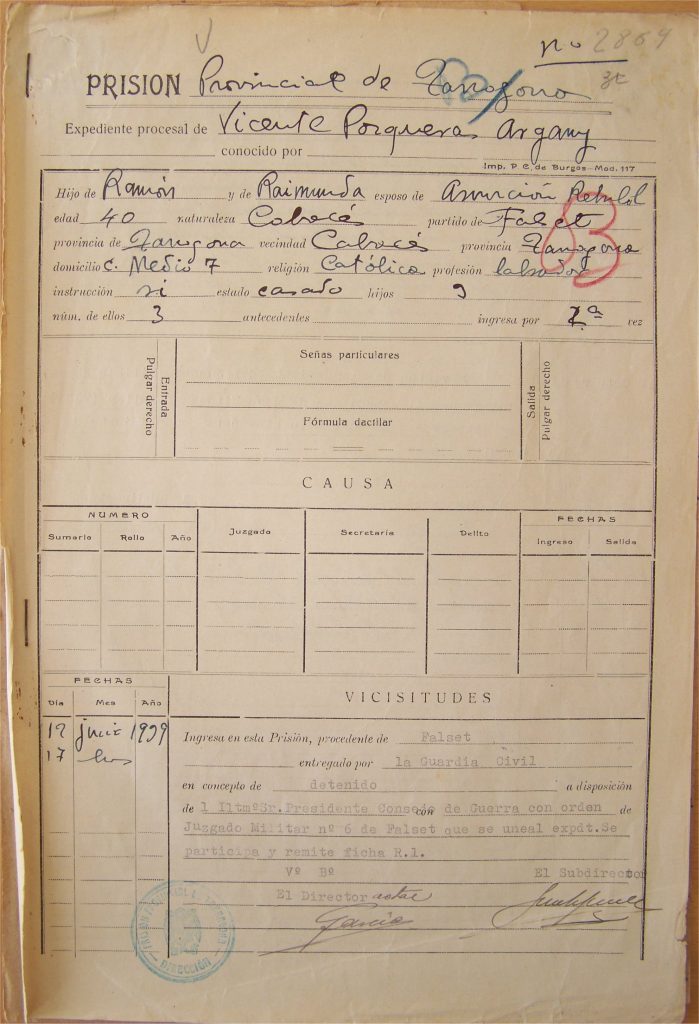 Nº 2864
PRISION Provincial de Tarragona
Expediente procesal de Vicente Porqueras Argany
conocido por
Imp. P. C. de Burgos-Mod. 117
Hijo de Ramón y de Raimunda esposo de Asunción Rebull
edad 40 naturaleza Cabacés partido de Falset
provincia de Tarragona vecindad Cabacés provincia Tarragona
domicilio C. Medio 7 religión Católica profesión labrador
instrucción si estado casado hijos 3
núm. de ellos 3 antecedentes ingresa por 1ª vez
83
Entrada
Pulgar derecho
Señas particulares
Fórmula dactilar
Salida
Pulgar derecho
CAUSA
NUMERO FECHAS
Sumario Rollo Año Juzgado Secretaría Delito Ingreso Salida
FECHAS
Día Mes Año
VICISITUDES
12 junio 1939
17
Ingresa en esta Prisión, procedente de Falset
entregado por la Guardia Civil
en concepto de detenido a disposición
de l IltmºSr.Presidente Consejo de Guerra con orden de
Juzgado Militar nº 6 de Falset que se uneal expdt.Se
participa y remite ficha R.1.
Vº Bº El Subdirector
El Director actal
García
DIRECCIÓN